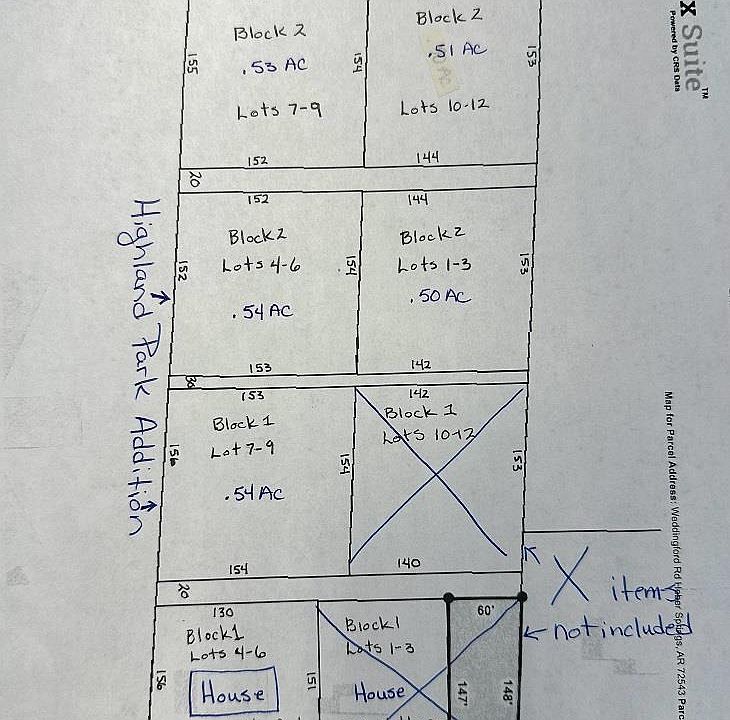 X Suite™
Powered by CRS Data
Block 2
.53 AC
Lots 7-9
155
154
152
Block 2
.51 AC
Lots 10-12
153
144
20
152
Block 2
Lots 4-6
.54 AC
152
154
153
144
Block 2
Lots 1-3
.50 AC
153
142
30
Highland Park Addition
153
Block 1
Lot 7-9
.54 AC
156
154
154
142
Block 1
Lots 10-12
153
140
Map for Parcel Address: Weddingford Rd Heber Springs, AR 72543 Parc
X items
not included
20
130
Block 1
Lots 4-6
House
156
151
Block 1
Lots 1-3
House
60'
147'
148'